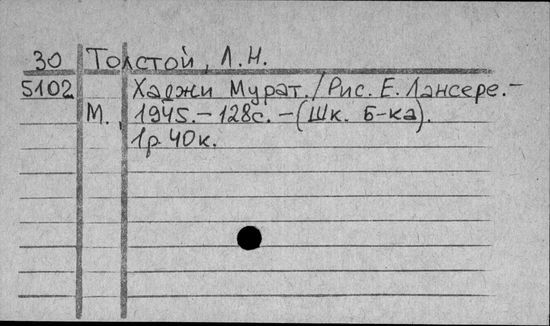 30 Толстой, Л.Н.
5102 Хаджи Мурат./Рис. Е. Лансере.-
М., 1945.-128с.-(Шк. Б-ка).
1р 40к.